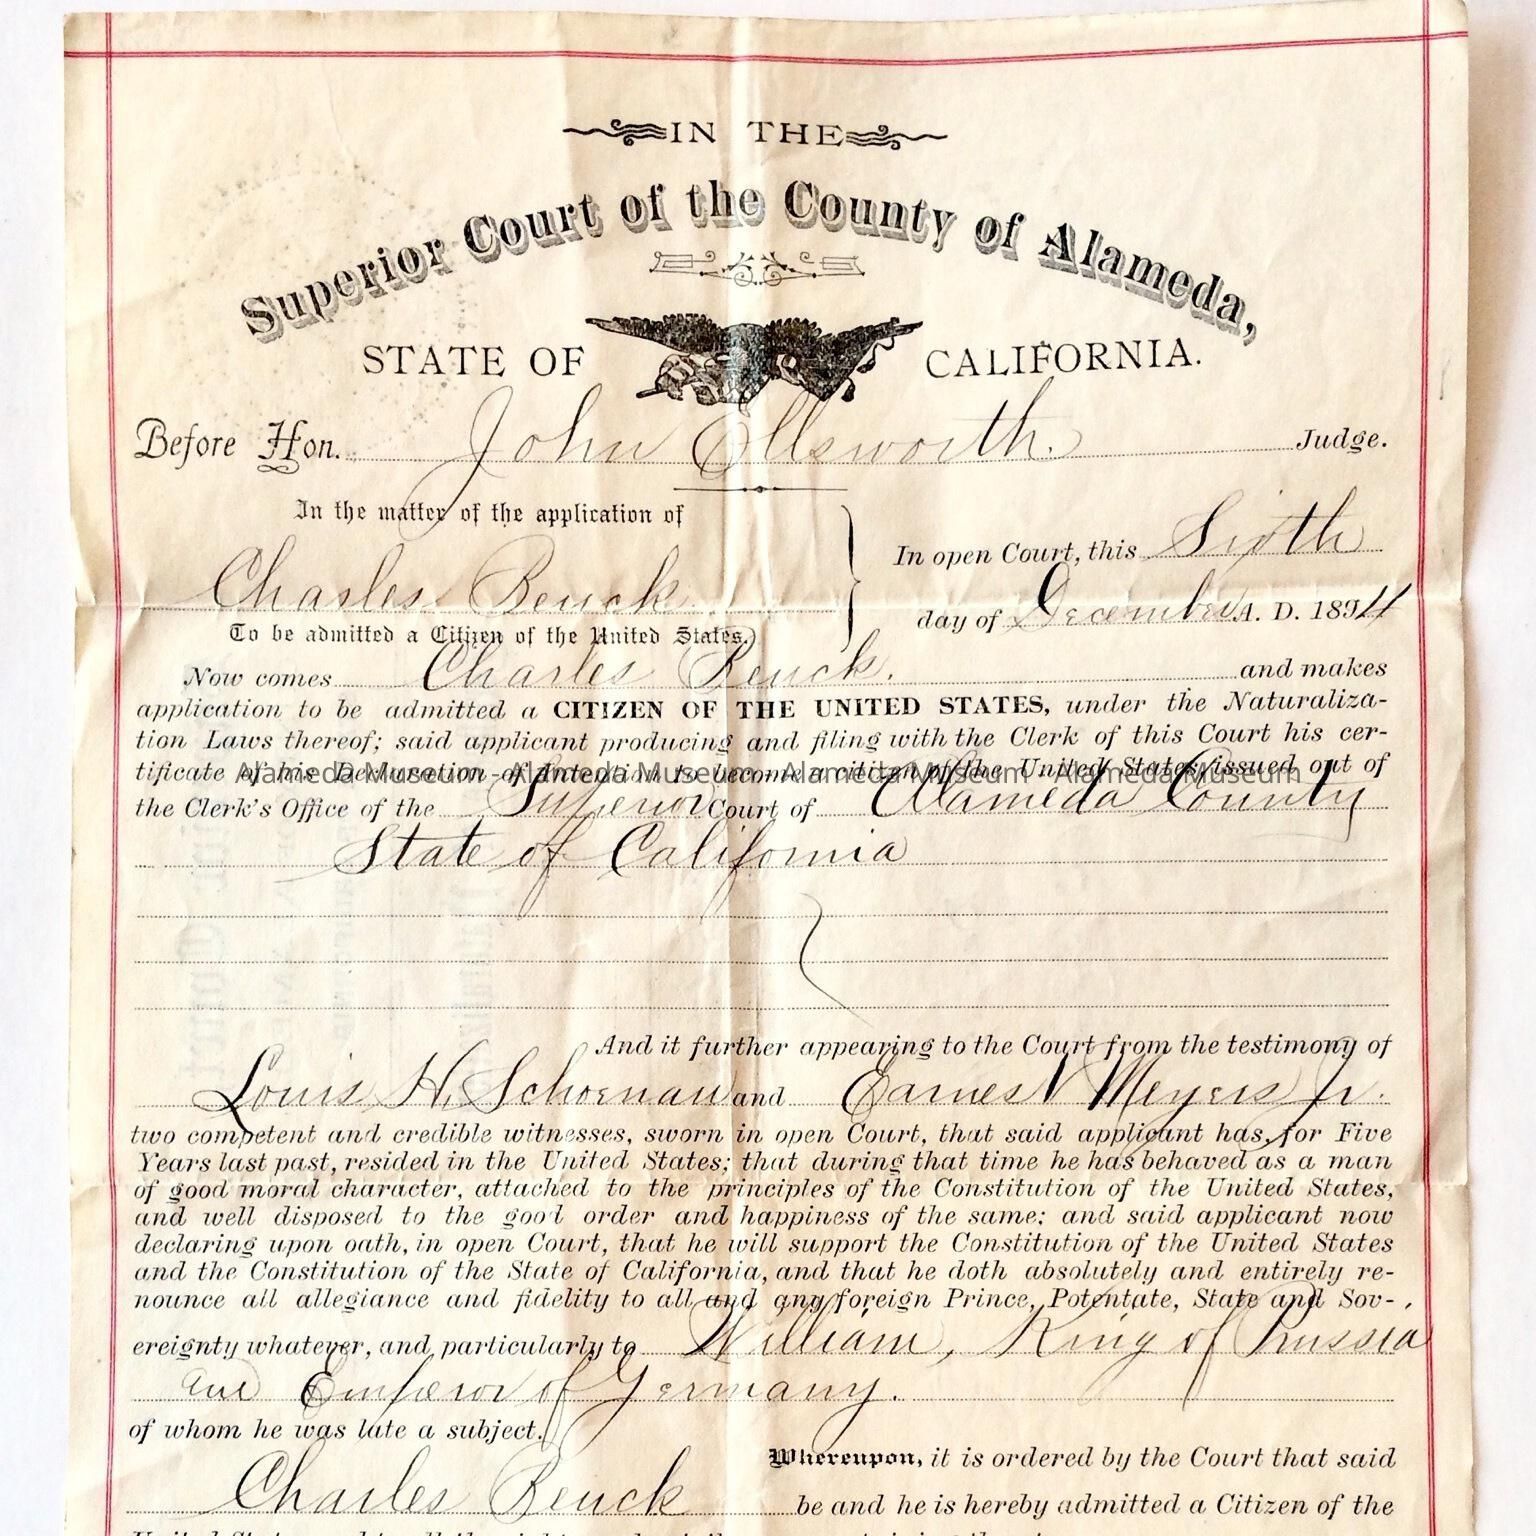 IN THE
Superior Court of the County of Alameda,
STATE OF CALIFORNIA.
Before Hon. John Ellsworth. Judge.
In the matter of the application of
Charles Reuck
To be admitted a Citizen of the United States.
In open Court, this Sixth
day of December A. D. 1894
Now comes Charles Reuck. and makes
application to be admitted a CITIZEN OF THE UNITED STATES, under the Naturaliza-
tion Laws thereof; said applicant producing and filing with the Clerk of this Court his cer-
tificate of his Declaration of Intention to become a citizen of the United States, issued out of
Alameda Museum - Alameda Museum - Alameda Museum - Alameda Museum
the Clerk's Office of the Superior Court of Alameda County
State of California
And it further appearing to the Court from the testimony of
Louis H. Schoenau and Earnest Meyers Jr.
two competent and credible witnesses, sworn in open Court, that said applicant has, for Five
Years last past, resided in the United States; that during that time he has behaved as a man
of good moral character, attached to the principles of the Constitution of the United States,
and well disposed to the good order and happiness of the same; and said applicant now
declaring upon oath, in open Court, that he will support the Constitution of the United States
and the Constitution of the State of California, and that he doth absolutely and entirely re-
nounce all allegiance and fidelity to all and any foreign Prince, Potentate, State and Sov-
ereignty whatever, and particularly to William, King of Prussia
and Emperor of Germany.
of whom he was late a subject.
Whereupon, it is ordered by the Court that said
Charles Reuck be and he is hereby admitted a Citizen of the